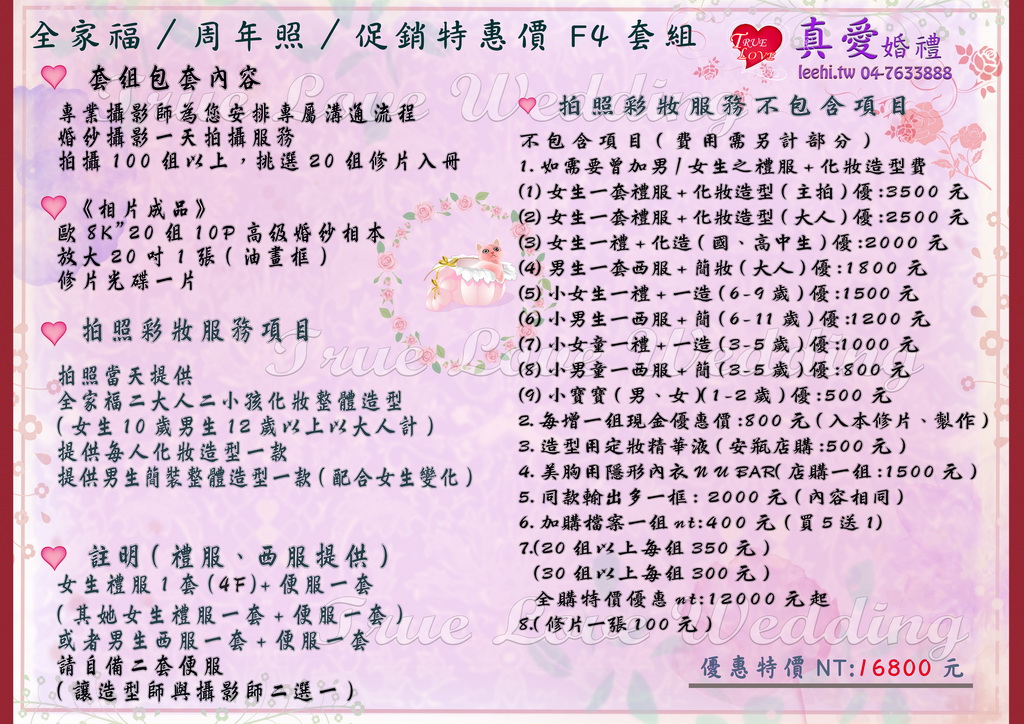 全家福／周年照／促銷特惠價 F4 套組
TRUE LOVE
真愛婚禮
leehi.tw 04-7633888
套組包套內容
專業攝影師為您安排專屬溝通流程
婚紗攝影一天拍攝服務
拍攝 100 組以上，挑選 20 組修片入冊
《相片成品》
歐 8K”20 組 10P 高級婚紗相本
放大 20 吋 1 張（油畫框）
修片光碟一片
拍照彩妝服務項目
拍照當天提供
全家福二大人二小孩化妝整體造型
（女生 10 歲男生 12 歲以上以大人計）
提供每人化妝造型一款
提供男生簡裝整體造型一款（配合女生變化）
註明（禮服、西服提供）
女生禮服 1 套 (4F)+ 便服一套
（其她女生禮服一套 + 便服一套）
或者男生西服一套 + 便服一套
請自備二套便服
（讓造型師與攝影師二選一）
拍照彩妝服務不包含項目
不包含項目（費用需另計部分）
1. 如需要曾加男 / 女生之禮服 + 化妝造型費
(1) 女生一套禮服 + 化妝造型（主拍）優 :3500 元
(2) 女生一套禮服 + 化妝造型（大人）優 :2500 元
(3) 女生一禮 + 化造（國、高中生）優 :2000 元
(4) 男生一套西服 + 簡妝（大人）優 :1800 元
(5) 小女生一禮 + 一造（6-9 歲）優 :1500 元
(6) 小男生一西服 + 簡（6-11 歲）優 :1200 元
(7) 小女童一禮 + 一造（3-5 歲）優 :1000 元
(8) 小男童一西服 + 簡（3-5 歲）優 :800 元
(9) 小寶寶（男、女）(1-2 歲）優 :500 元
2. 每增一組現金優惠價 :800 元（入本修片、製作）
3. 造型用定妝精華液（安瓶店購 :500 元）
4. 美胸用隱形內衣 NUBAR（店購一組 :1500 元）
5. 同款輸出多一框 : 2000 元（內容相同）
6. 加購檔案一組 nt:400 元（買 5 送 1)
7.(20 組以上每組 350 元）
(30 組以上每組 300 元）
全購特價優惠 nt:12000 元起
8.(修片一張 100 元）
優惠特價 NT:16800 元
True Love Wedding
True Love Wedding
True Love Wedding